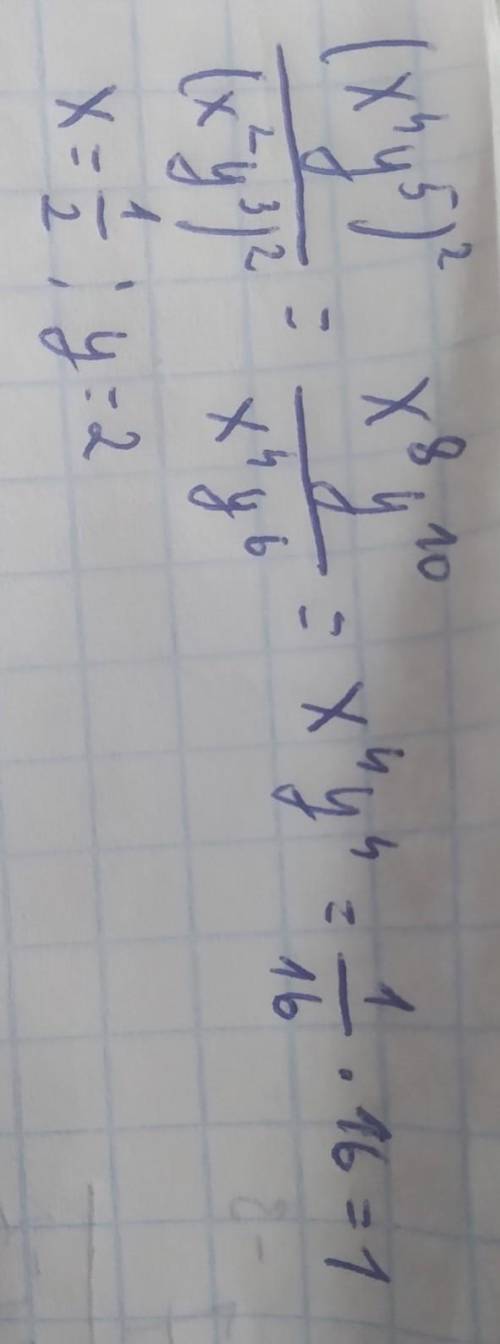 (x⁴y⁵)² / (x²y³)² = x⁸y¹⁰ / x⁴y⁶ = x⁴y⁴ = 1/16 · 16 = 1
x = 1/2 ; y = 2